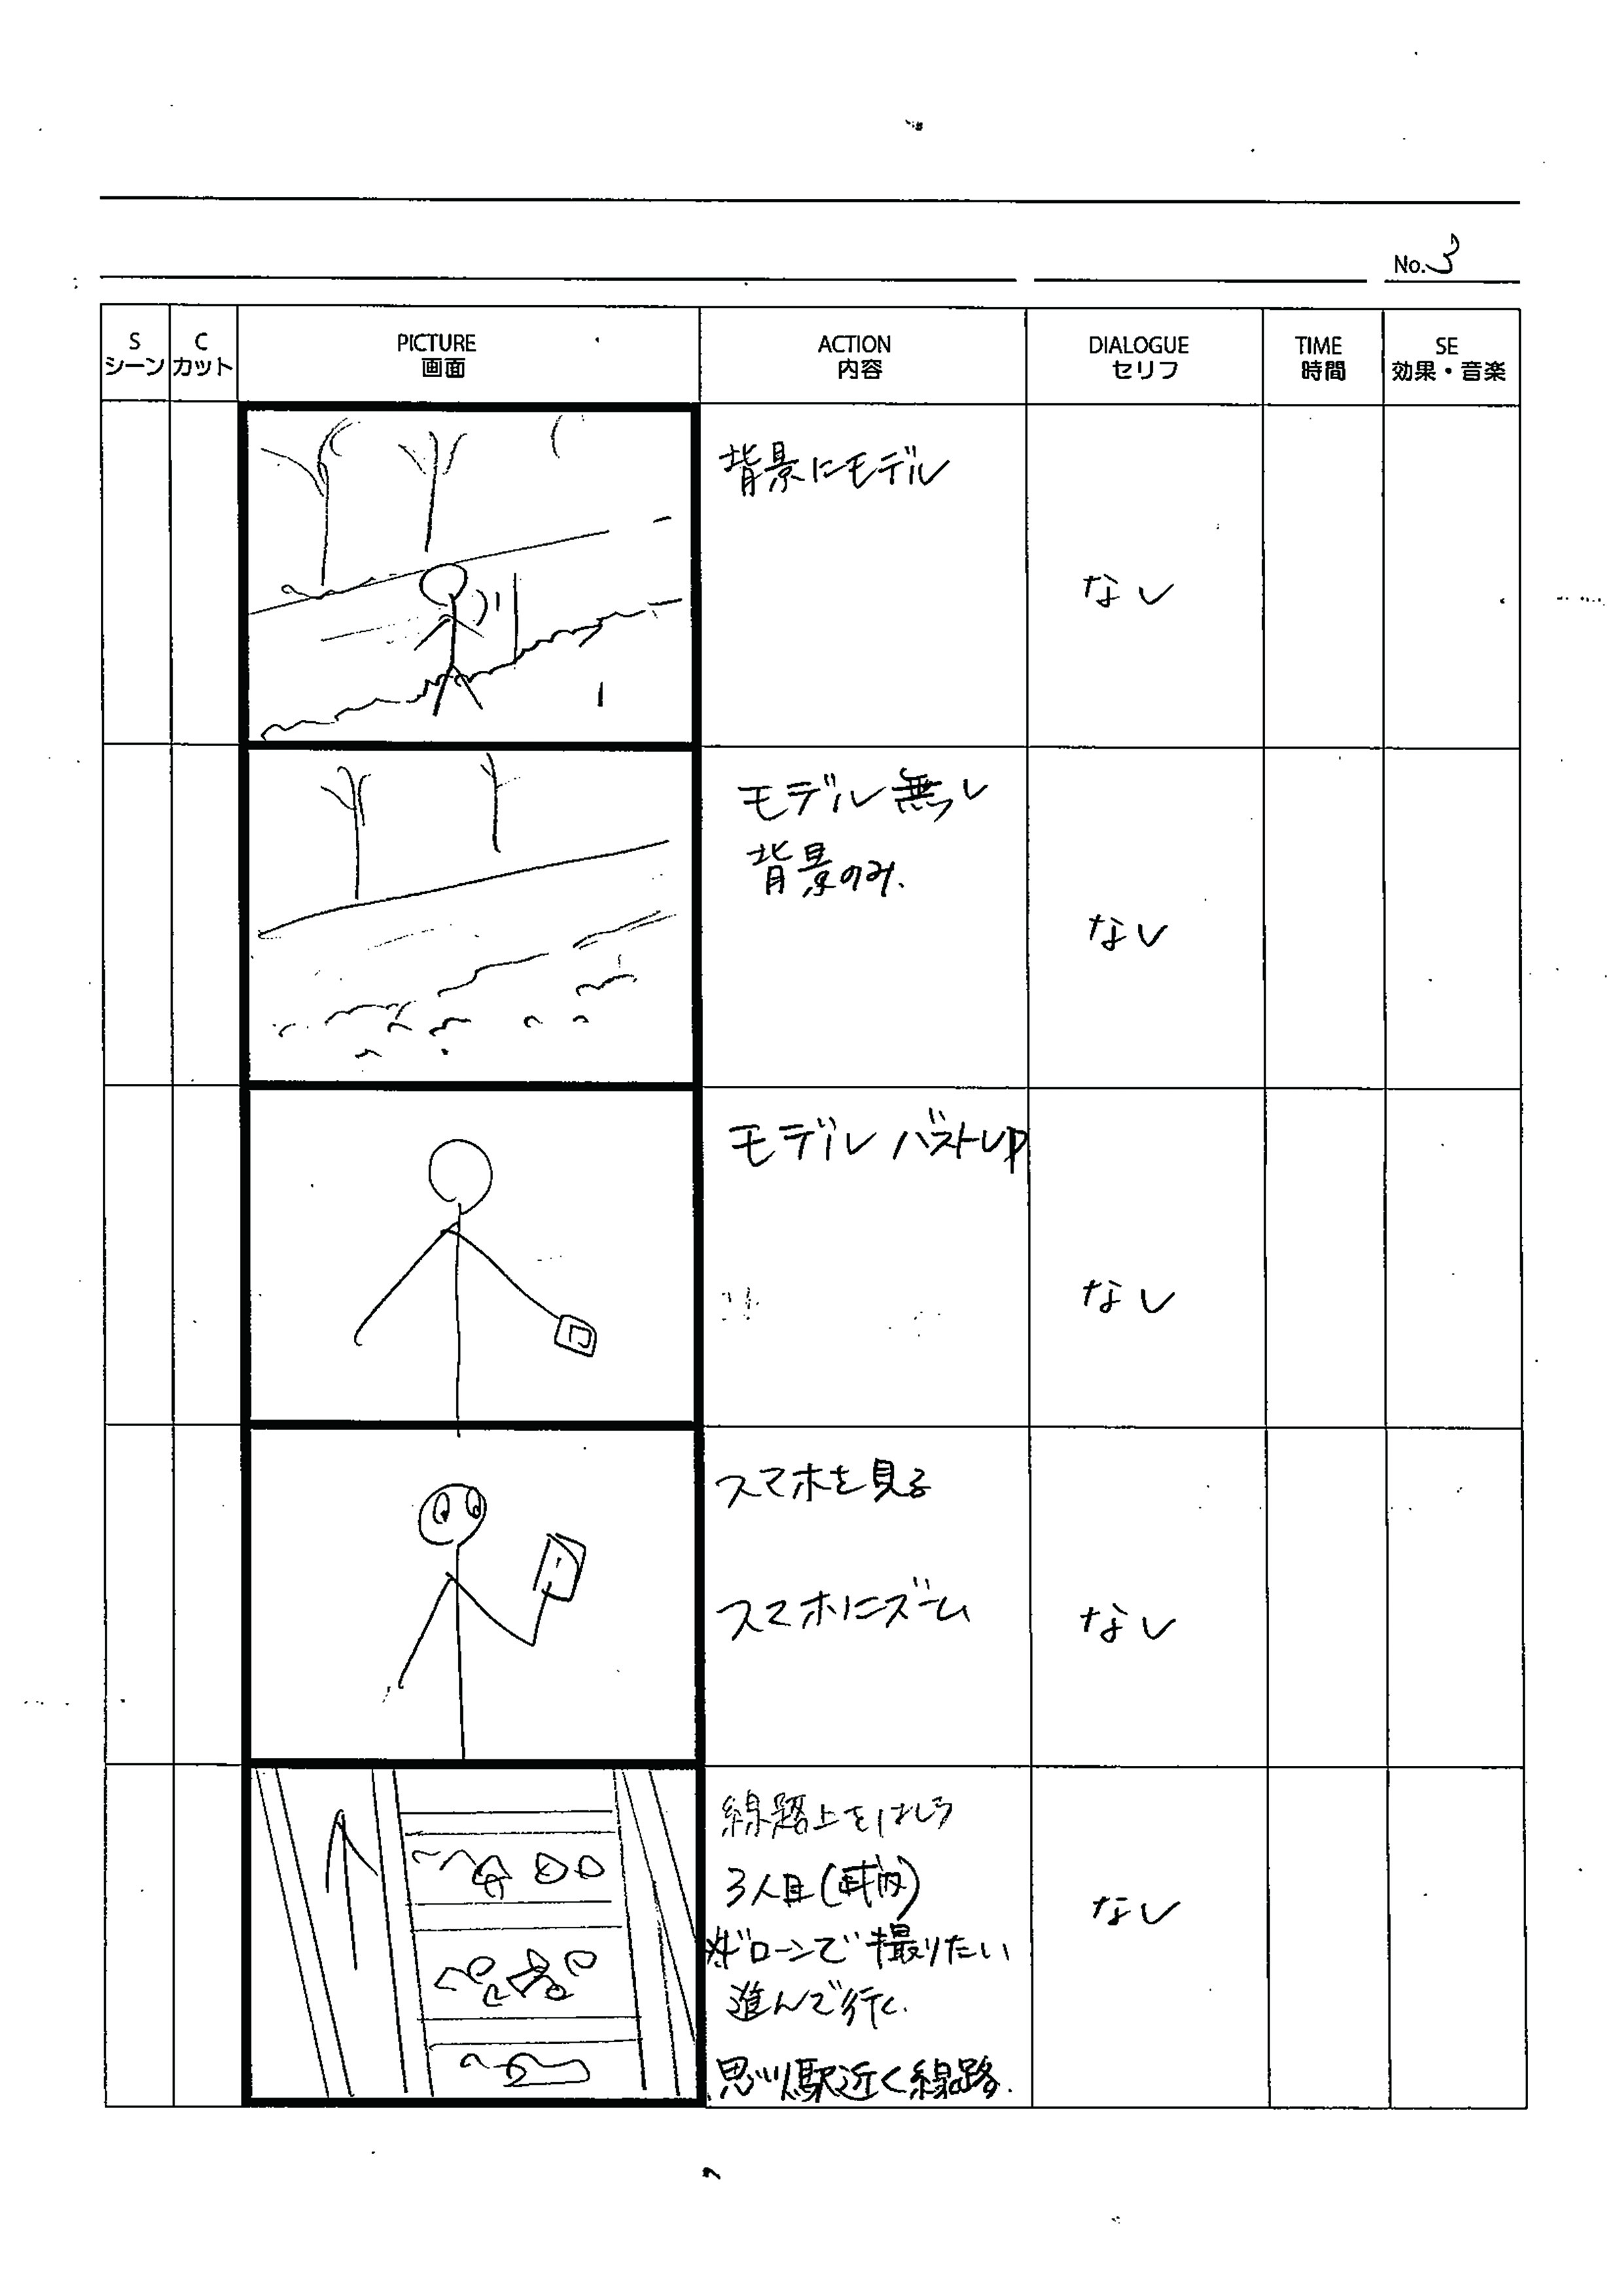 No.3
S C PICTURE ACTION DIALOGUE TIME SE
シーン カット 画面 内容 セリフ 時間 効果・音楽
背景にモデル
なし
モデル無し
背景のみ.
なし
モデル バストup
なし
スマホを見る
スマホにズーム
なし
線路上をはしる
3人目
※ドローンで撮りたい
進んで行く.
思川駅近く線路.
なし